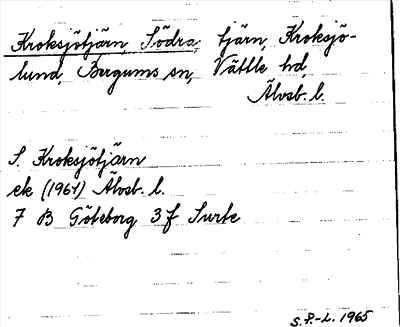 Kroksjötjärn, Södra, tjärn, Kroksjö-
lund, Bergums sn, Vättle hd,
Älvsb. l.
S. Kroksjötjärn
ek (1961) Älvsb. l.
7 B Göteborg 3 f Surte
S.P.-L. 1965